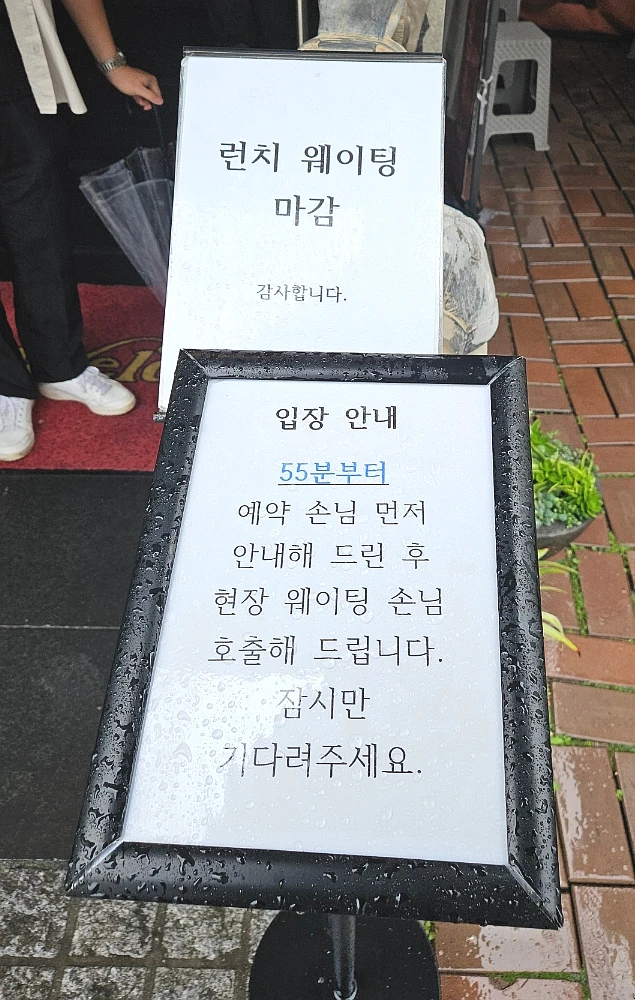 런치 웨이팅
마감
감사합니다.
입장 안내
55분부터
예약 손님 먼저
안내해 드린 후
현장 웨이팅 손님
호출해 드립니다.
잠시만
기다려주세요.